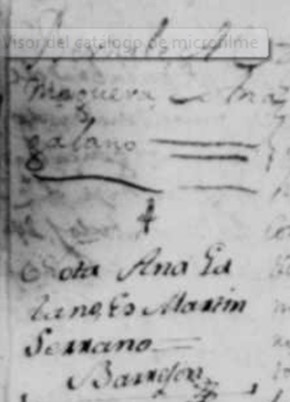 Visor del catálogo de microfilme
Maguera Ana
galano
Nota Ana Ga
lano, Es Martin
Serrano
Barrejon